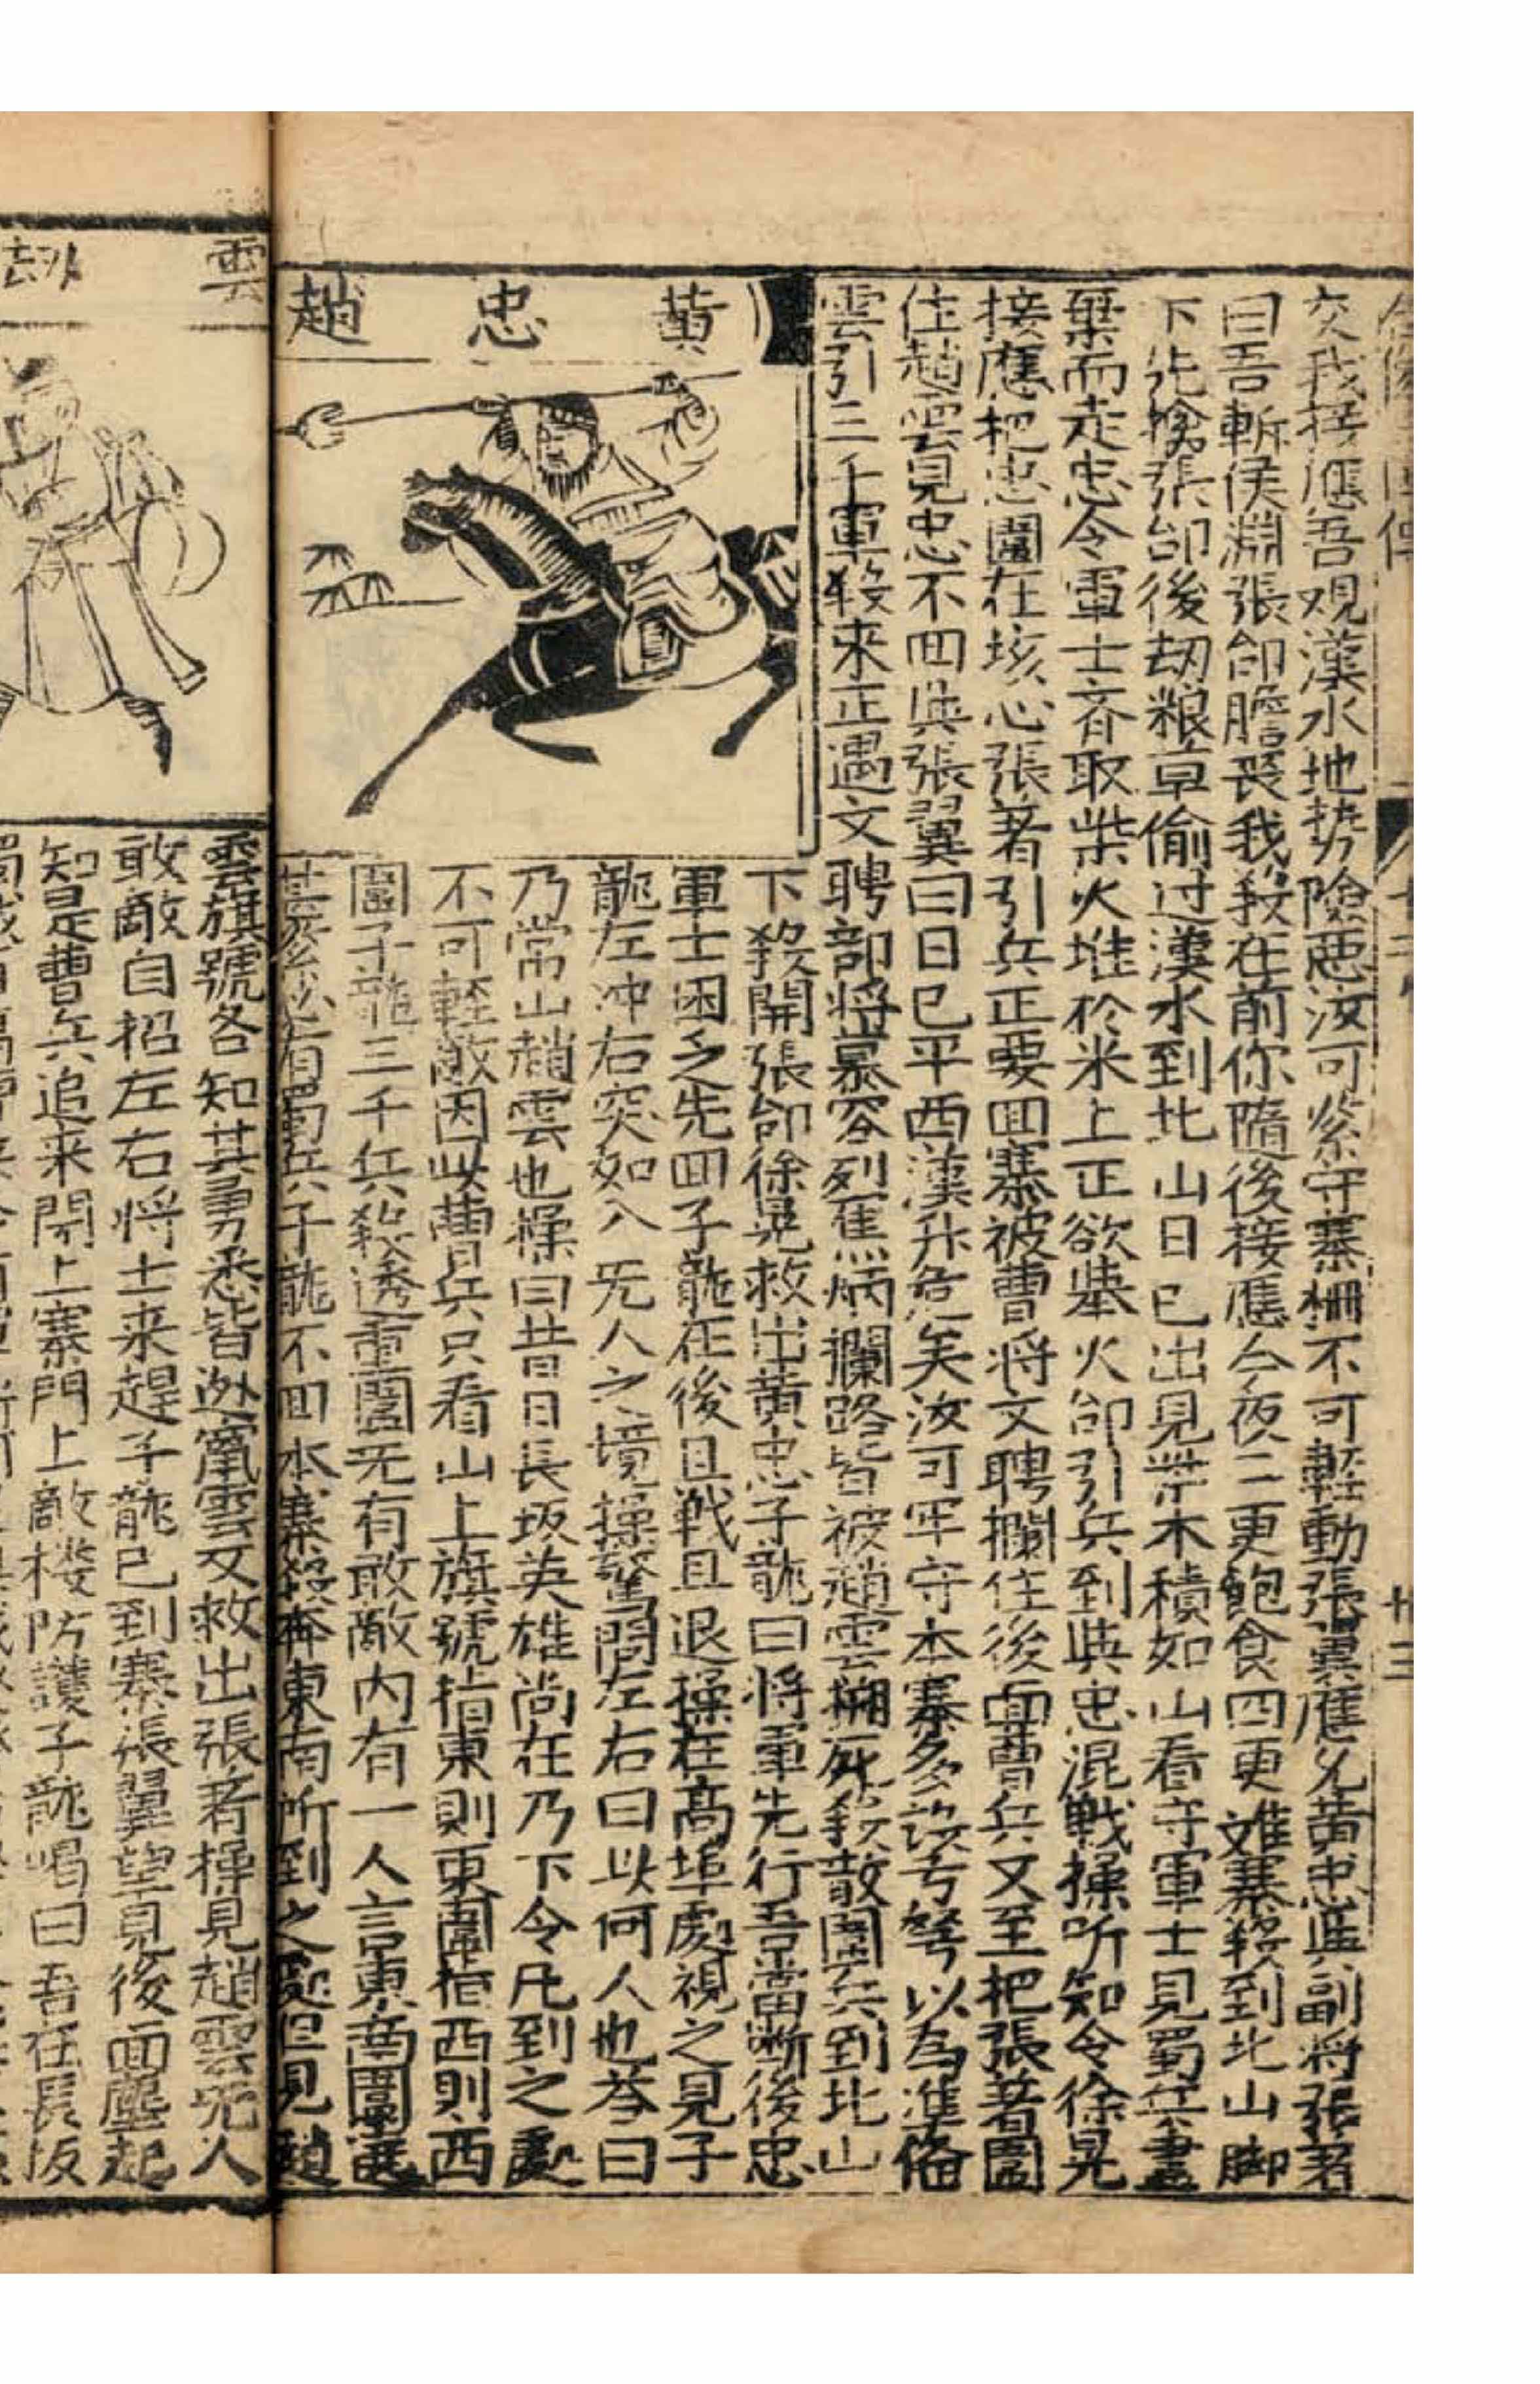 交我接應吾观漢水地势險惡汝可紧守寨柵不可輕動張翼應允黄忠與副将張著
曰吾斬侯淵張郃膽喪我殺在前你隨後接應今夜二更飽食四更離寨殺到北山脚
下先擒張郃後刼粮草偷过漢水到北山日已出見柴木積如山看守軍士見蜀兵盡
棄而走忠令軍士斉取柴火堆於米上正欲舉火郃引兵到與忠混戰操听知令徐晃
接應把忠圍在垓心張著引兵正要囬寨被曹将文聘攔住後面曹兵又至把張著圍
住趙雲見忠不囬與張翼曰日已平西漢升危矣汝可牢守本寨多設弓弩以為準俻
雲引三千軍殺来正遇文聘部将慕容列焦炳攔路皆被趙雲搠死殺散圍兵到北山
下殺開張郃徐晃救出黄忠子龍曰将軍先行吾當断後忠
軍士困乏先囬子龍在後且戰且退操在高埠處視之見子
龍左冲右突如入旡人之境操驚問左右曰此何人也荅曰
乃常山趙雲也操曰昔日長坂英雄尚在乃下令凡到之處
不可輕敵因此曹兵只看山上旗號指東則東圍指西則西
圍子龍三千兵殺透重圍旡有敢敵内有一人言東南圍
必有蜀兵子龍不囬本寨殺奔東南所到之處但見趙
黄忠趙
雲旗號各知其勇悉皆逊竄雲又救出張著操見趙雲旡人
敢敵自招左右将士来趕子龍已到寨張翼望見後面塵起
知是曹兵追来閉上寨門上敵楼防護子龍喝曰吾在長坂
雲刼